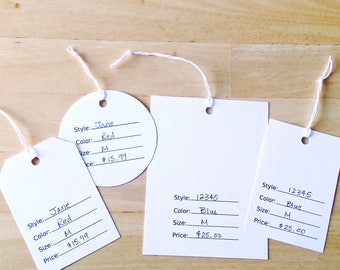 Style: Jane
Color: Red
Size: M
Price: $15.99
Style: Jane
Color: Red
Size: M
Price: $15.99
Style: 12345
Color: Blue
Size: M
Price: $25.00
Style: 12345
Color: Blue
Size: M
Price: $25.00